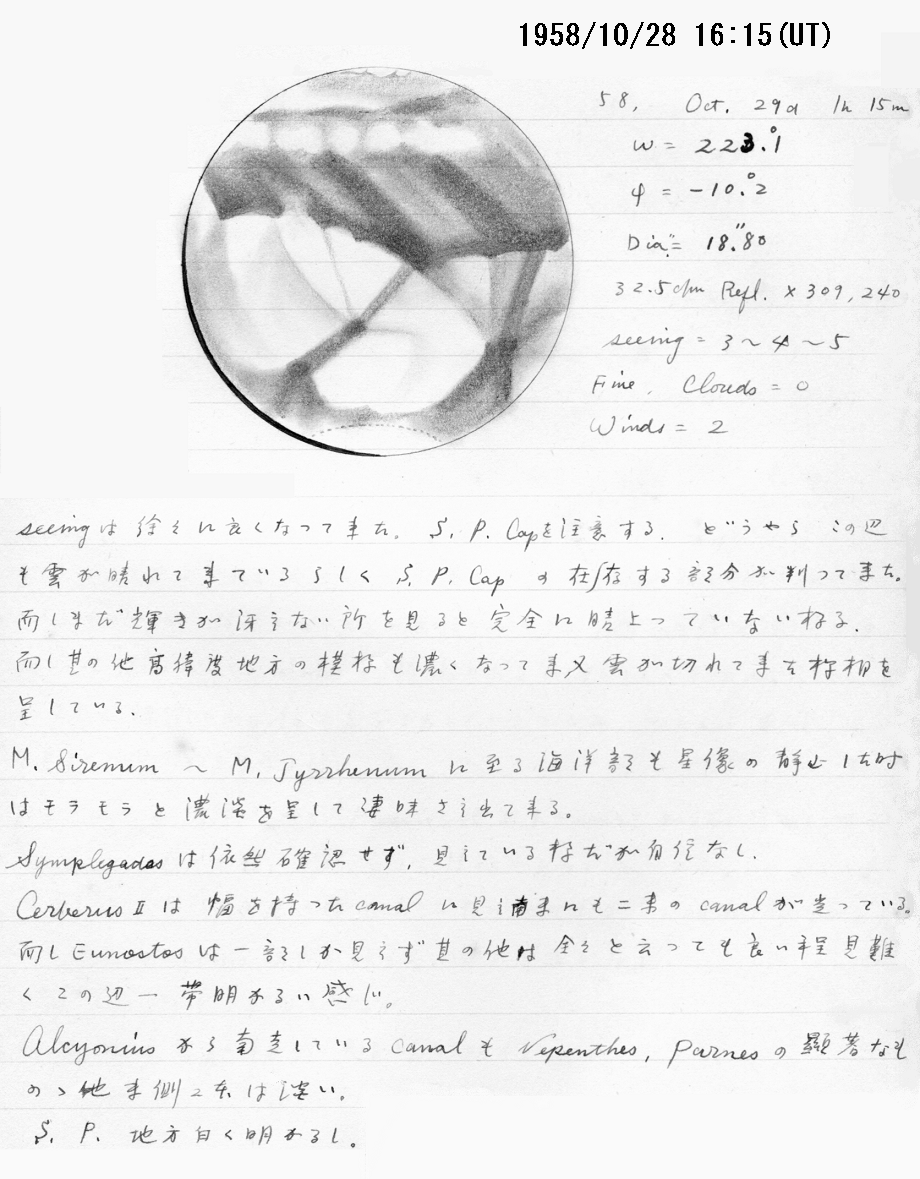 1958/10/28 16:15(UT)
58, Oct. 29d 1h 15m
ω = 223.°1
φ = -10.°2
Dia. = 18."80
32.5cm Refl. × 309, 240
seeing = 3 ~ 4 ~ 5
Fine, Clouds = 0
Winds = 2
seeingは徐々に良くなって来た。 S. P. Capを注意する. どうやら この辺
も雲が晴れて来ているらしく S. P. Cap の在存する部分が判って来た。
而しまだ輝きが冴えない所を見ると完全に晴上っていない様る.
而し其の他高緯度地方の模様も濃くなって来又雲が切れて来た様相を
呈している.
M. Sirenum ~ M. Tyrrhenum に至る海洋部も星像の静止した時
はモラモラと濃淡を呈して凄味さえ出て来る。
Symplegadesは依然確認せず, 見えている様だが自信なし.
Cerberus II は幅を持ったcanalに見え まにも二条のcanalが走っている。
而しEunostosは一部しか見えず其の他は全々と云っても良い程見難
くこの辺一帯明かるい感じ。
Alcyoniusから南走しているcanalもNepenthes, Parnesの顕著なも
のゝ他 側2本は淡い。
S. P. 地方白く明かるし.